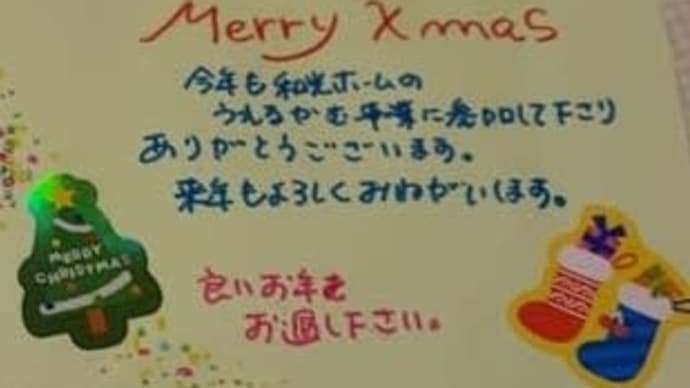 Merry Xmas
今年も和光ホームの
うえるかむ事業に参加して下さり
ありがとうございます。
来年もよろしくおねがいします。
MERRY
CHRISTMAS
良いお年を
お過し下さい。